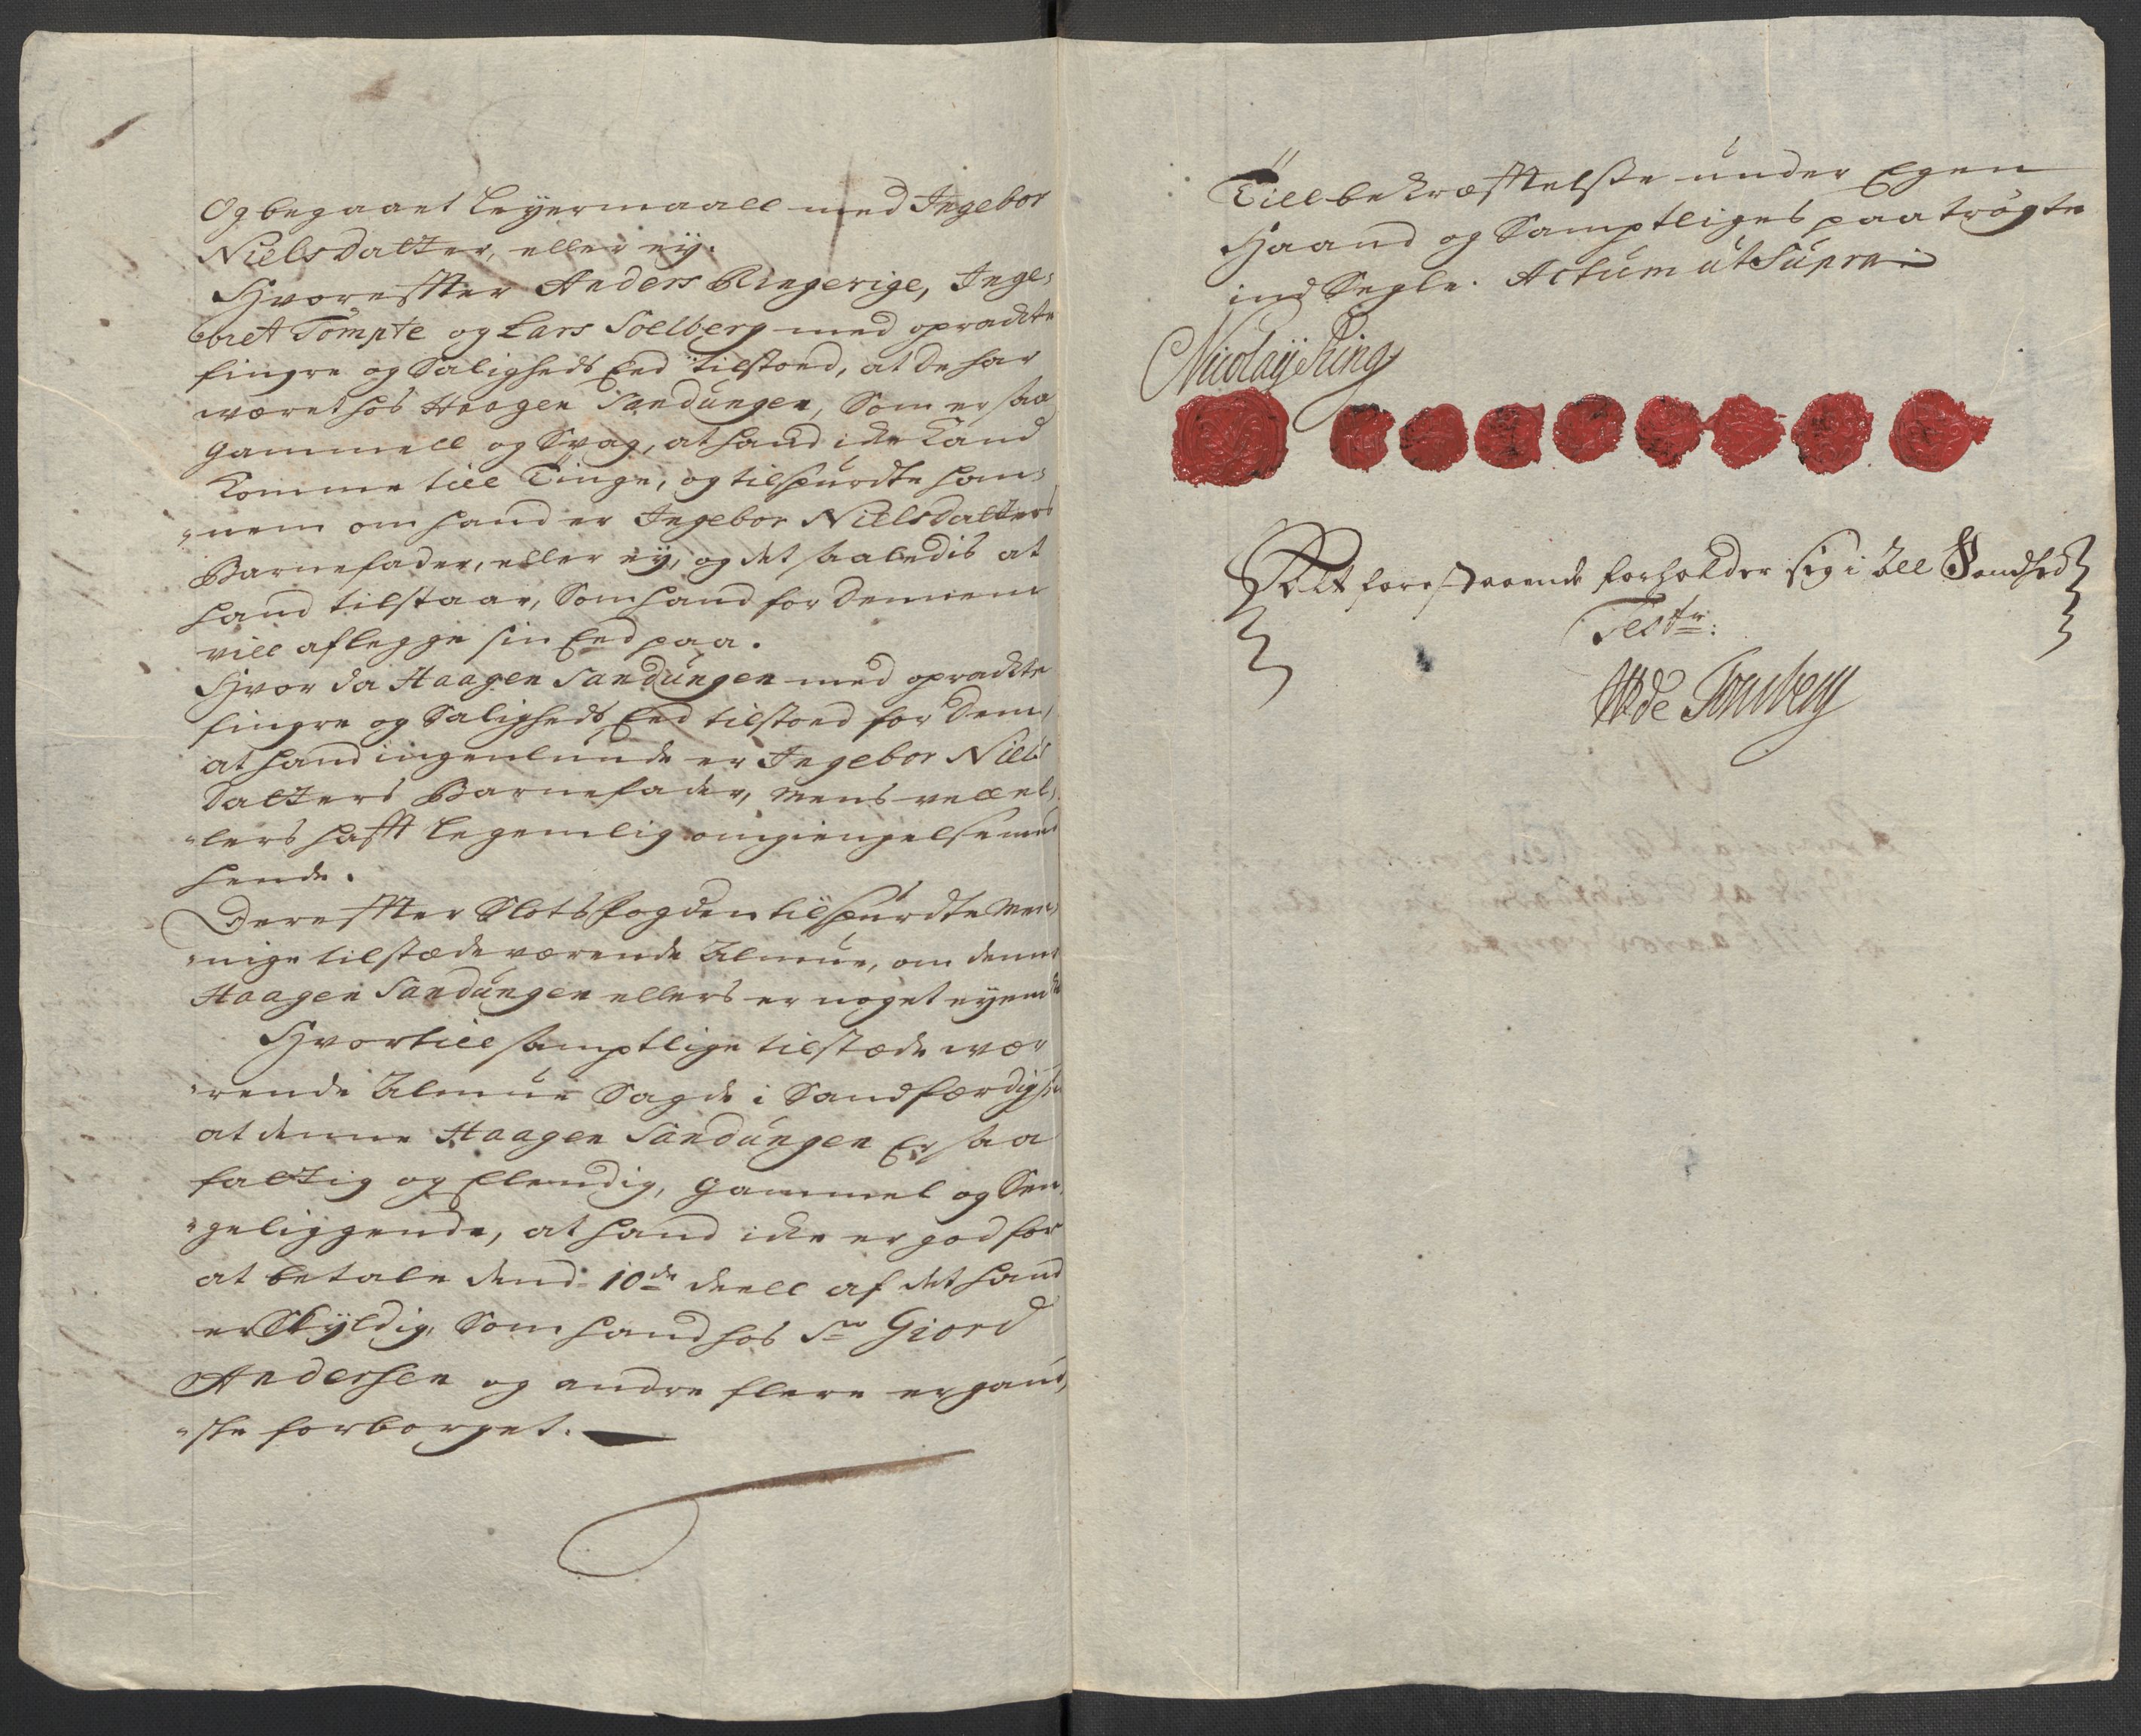 Og begaaet Leyermaall med Ingebor
Nielsdatter, eller ey.
Hvorefter Anders Ringerige, Inge-
bret Tompte og Lars Soelberg med opracte
fingre og Saligheds Eed tilstoed, at de har
wæret hos Haagen Sandungen, Som er saa
gammell og Svag, at hand icke kand
komme till Tinge, og tilspurdte han-
nem om hand er Ingebor Nielsdatters
Barnefader, eller ey, og det saaledis at
hand tilstaar, Som hand for dennem
vill aflegge sin Eed paa.
Hvor da Haagen Sandungen med opracte
fingre og Saligheds Eed tilstoed for dem,
at hand ingenlunde er Ingebor Niels
datters Barnefader, mens vel el-
lers hafft legemlig omgiengelse med
hende.
Derefter Slotsfogden tilspurdte Men-
nige tilstædeværende Almue, om denne
Haagen Sandungen ellers er noget eyende
Hvortill samptlige tilstæde wæ-
rende Almue Sagde i Sandfærdighed
at denne Haagen Sandungen Er saa
fattig og Elendig, gammel og Sen-
geliggende, at hand icke er god for
at betale dend 10de deell af det hand
er Skyldig, Som hand hos Sr Giord
Andersen og andre flere er gand-
ske forborget.
Till bekræfftelsse under Egen
Haand og Samptliges paatrögte
indSegle. Actum ut Supra
Nicolaij Ring
At forestaaende forholder sig i all Sandhed
Testr:
WdeTonsberg